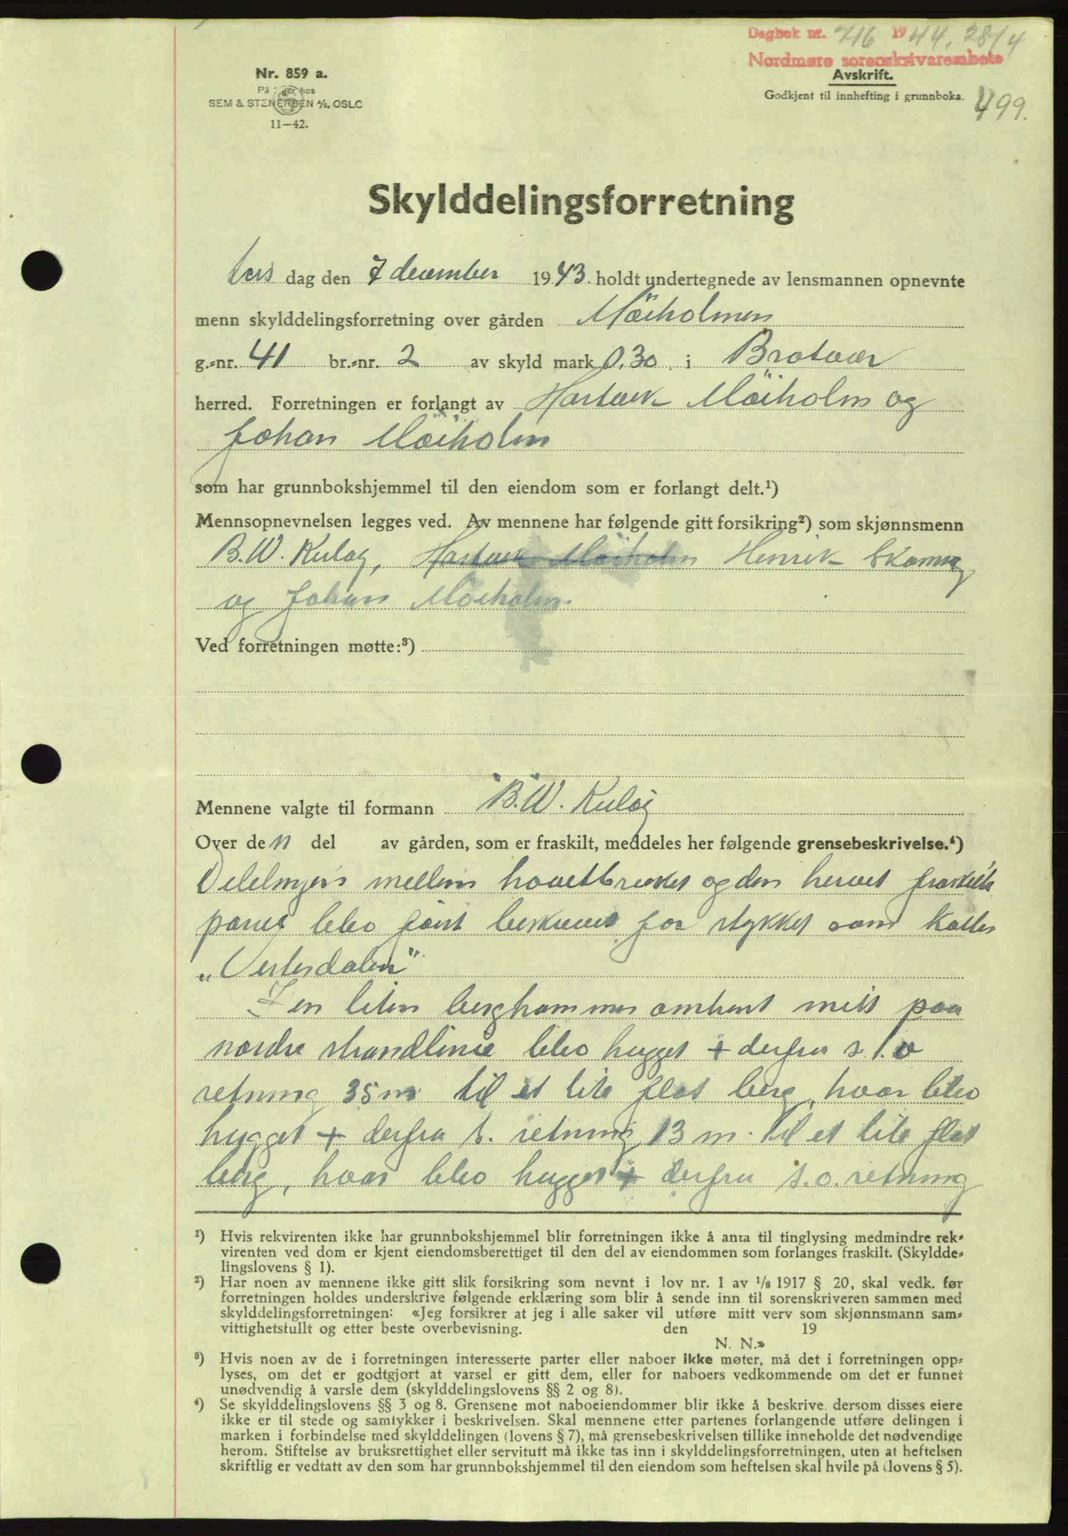 Dagbok nr. 716 1944, 28/4
Nordmøre sorenskrivarembete
Avskrift.
Godkjent til innhefting i grunnboka.
499.
Nr. 859 a.
SEM & STENERSEN A/S, OSLO
11—42.
Skylddelingsforretning
dag den 7 december 1943. holdt undertegnede av lensmannen opnevnte
menn skylddelingsforretning over gården Möiholmen
g.-nr. 41 br.-nr. 2 av skyld mark 0,30 i Bratvær
herred. Forretningen er forlangt av Hartvik Möiholm og
Johan Möiholm
som har grunnbokshjemmel til den eiendom som er forlangt delt.¹)
Mennsopnevnelsen legges ved. Av mennene har følgende gitt forsikring²) som skjønnsmenn
B.W. Kuløy, Henrik
og Johan Möiholm
Ved forretningen møtte:³)
Mennene valgte til formann B.W. Kuløy
Over den del av gården, som er fraskilt, meddeles her følgende grensebeskrivelse.⁴)
mellem og den
blev for stykket som kalles
„Vestesdalen"
I en liten berghammer omtrent mitt paa
nordre strandlinie blev hugget + derfra s.t.o
retning 35 m til et lite flat berg, hvor blev
hugget + derfra s. retning 13 m. til et lite flat
berg, hvor blev hugget + derfra s.o. retning
¹) Hvis rekvirenten ikke har grunnbokshjemmel blir forretningen ikke å anta til tinglysing medmindre rek-
virenten ved dom er kjent eiendomsberettiget til den del av eiendommen som forlanges fraskilt. (Skyldde-
lingslovens § 1).
²) Har noen av mennene ikke gitt slik forsikring som nevnt i lov nr. 1 av 1/6 1917 § 20, skal vedk. før
forretningen holdes underskrive følgende erklæring som blir å sende inn til sorenskriveren sammen med
skylddelingsforretningen: «Jeg forsikrer at jeg i alle saker vil utføre mitt verv som skjønnsmann sam-
vittighetsfullt og etter beste overbevisning. den 19
N. N.»
³) Hvis noen av de i forretningen interesserte parter eller naboer ikke møter, må det i forretningen opp-
lyses, om det er godtgjort at varsel er gitt dem, eller for naboers vedkommende om det er funnet
unødvendig å varsle dem (skylddelingslovens §§ 2 og 8).
⁴) Se skylddelingslovens §§ 3 og 8. Grensene mot naboeiendommer blir ikke å beskrive dersom disses eiere
ikke er til stede og samtykker i beskrivelsen. Skal mennene etter partenes forlangende utføre delingen i
marken i forbindelse med skylddelingen (lovens § 7), må grensebeskrivelsen tillike inneholde det nødvendige
herom. Stiftelse av bruksrettighet eller servitutt må ikke tas inn i skylddelingsforretningen, uten at heftelsen
skriftlig er vedtatt av den som har grunnbokshjemmel til den eiendom som heftelsen skal hvile på (lovens § 5).